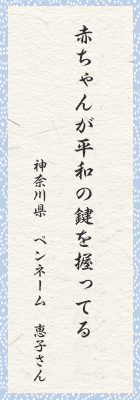 赤ちゃんが平和の鍵を握ってる
神奈川県 ペンネーム 恵子さん